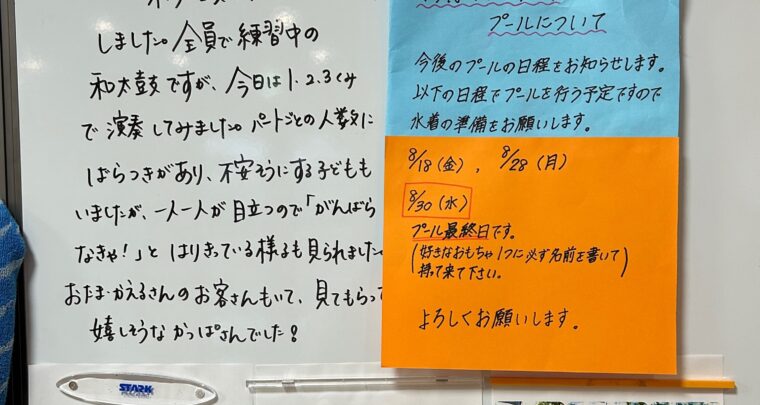 しました。全員で練習中の
和太鼓ですが、今日は1.2.3くみ
で演奏してみました。パートごとの人数に
ばらつきがあり、不安そうにする子どもも
いましたが、一人一人が目立つので「がんばら
なきゃ!」とはりきっている様子も見られました。
おたま・かえるさんのお客さんもいて、見てもらって
嬉しそうなかっぱさんでした!
STARK
プールについて
今後のプールの日程をお知らせします。
以下の日程でプールを行う予定ですので
水着の準備をお願いします。
8/18(金)、8/28(月)
8/30(水)
プール最終日です。
(好きなおもちゃ1つに必ず名前を書いて
持って来て下さい。)
よろしくお願いします。